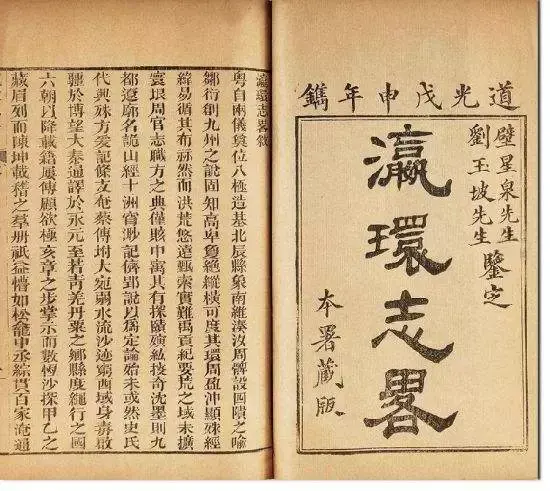 道光戊申年鐫
壁星泉先生
劉玉坡先生
鑒定
瀛環志畧
本署藏版
瀛環志畧敘
粵自兩儀奠位八極造基北辰縣象南維湊沒周髀設囘隤之喻
鄒衍創九州之說固知高卑敻絕縱橫可度其環周盈沖顯殊經
緯易循其布然而洪荒悠遠飄索實難禹貢紀要荒之域未擴
寰垠周官志職方之典僅賅中寓其有探賾殫紘技奇沈墨則九
都遼廓名詭山經十洲渺記儕郢說以為定論殆未或然史氏
代興殊方爰記條支奄蔡傳坿大宛弱水流沙迹窮西域身毒啟
疆於博望大秦通譯於永元至若青羌丹粟之鄉縣度繩行之國
六朝以降載籍屢傳顧欲極亥章之步掌示而數恆沙探甲乙之
藏眉列而陳坤載稽之草冊祇益懵如松龕中丞綜貫百家淹通